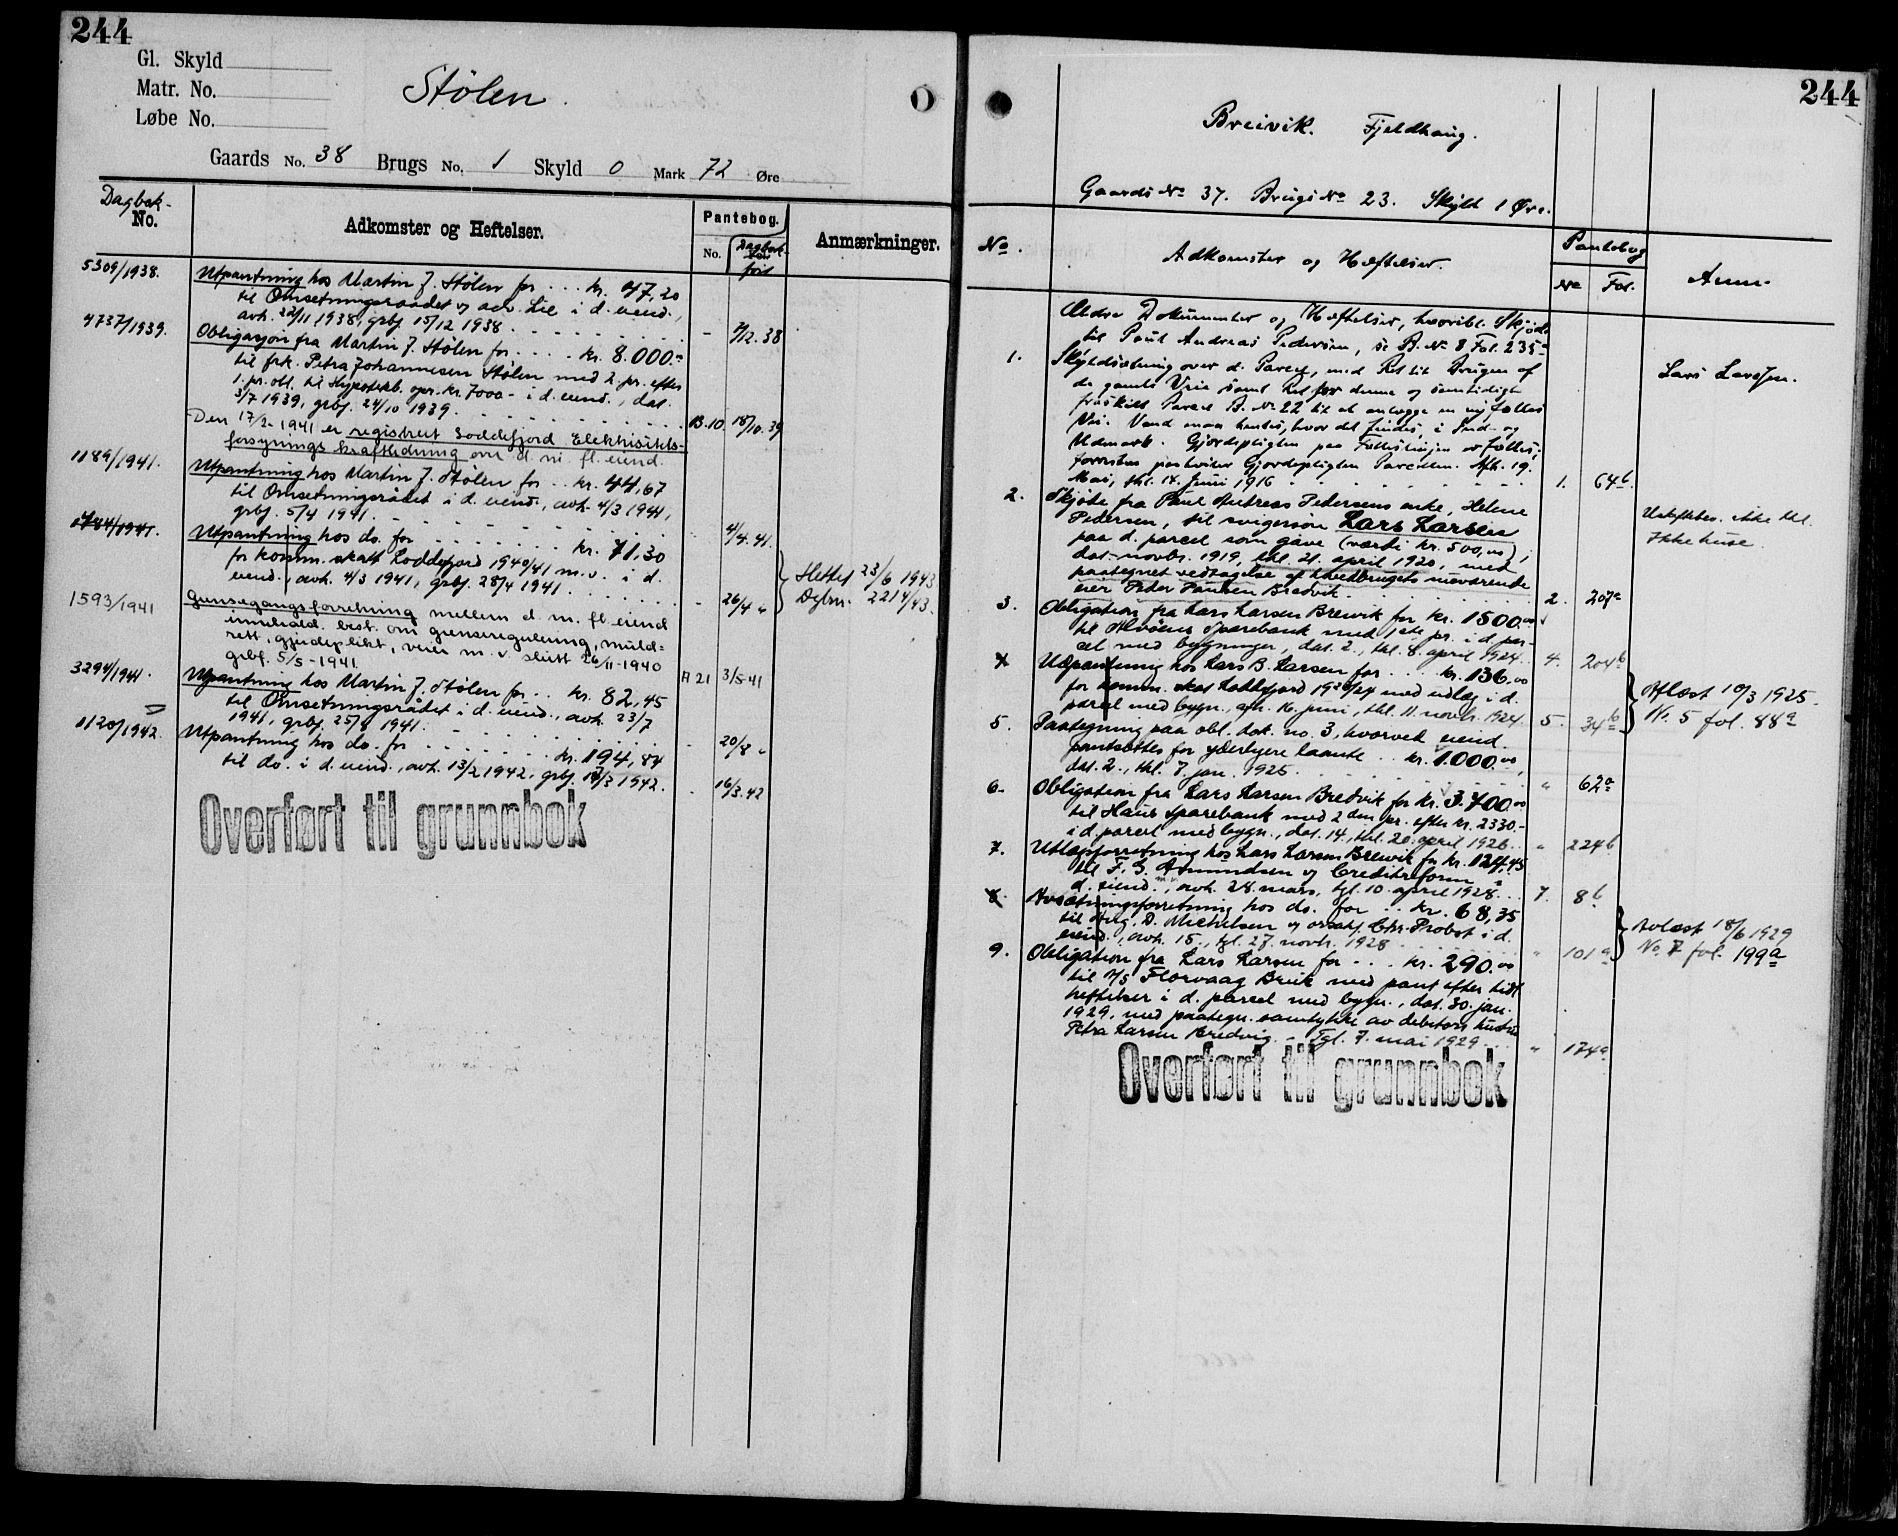 244
Gl. Skyld
Matr. No.
Løbe No.
Stølen.
Gaards No. 38 Brugs No. 1 Skyld 0 Mark 72 Øre
Dagbok-No.
Adkomster og Heftelser.
Pantebog.
No.
Anmærkninger.
5309/1938. Utpantning hos Martin J. Stølen for ... kr. 47,20
til Omsetningsraadet v/ adv. Lie i d. eiend.,
avh. 22/11 1938, grbf. 15/12 1938. - 7/12.38
4737/1939. Obligasjon fra Martin J. Stølen for .... kr. 8.000.-
til frk. Petra Johannesen Stølen med 2. pr. efter
1. pr. obl. til Hypotekb. opr. kr. 7000.- i d. eiend., dat.
3/7 1939, grbf. 24/10 1939. B.10. 18/10.39
Den 17/2-1941 er registrert Loddefjord Elektrisitets-
forsynings kraftledning over d. m. fl. eiend.
1189/1941. Utpantning hos Martin J. Stølen for .. kr. 44,67
til Omsetningsrådet i d. eiend., avh. 4/3 1941,
grbf. 5/4 1941. - 4/4.41.
1784/1941. Utpantning hos do. for kr. 71.30
for komm. skatt Loddefjord 1940/41 m.v. i d.
eiend., avh. 4/3 1941, grbf. 28/4 1941. - 26/4 "
Slettet 23/6 1943
Dgbnr. 2214/43.
1593/1941 Grensegangsforretning mellem d. m. fl. eiend
inneháld. best. om grenseregulering, muld-
rett, gjerdeplikt, veier m.v. slutt 26/11-1940
grbf. 5/5-1941. A 21 3/5-41
3294/1941. Utpantning hos Martin J. Stølen for .. kr. 82,45
til Omsetningsrådet i d. eiend., avh. 23/7
1941, grbf. 25/8 1941. - 20/8 "
1120/1942. Utpantning hos do. for kr. 194,84
til do. i d. eiend., avh. 13/2 1942, grbf. 18/3 1942. - 16/3.42
Overført til grunnbok
244
Breivik. Fjeldhaug.
Gaards No 37. Brugs No 23. Skyld 1 Øre.
No.
Adkomster og Hæftelser.
Pantebog
No Fol.
Anm.
Ældre Dokumenter og Hæftelser, hvoribl. Skjøde
til Paul Andreas Pedersen, se B. No 8 Fol. 235
Lars Larssen.
1. Skyldsætning over d. Parcel, med Ret til Brugen af
de gamle Veie samt Ret for denne og samtidigt
fraskilt Parcel B. No 22 til at anlægge en ny fælles
Vei. Vand maa hentes, hvor det findes, i Ind- og
Udmark. Gjerdepligten paa Fælleslinjen er fælles;
forøvrigt paahviler Gjerdepligten Parcellen. Afh. 19.
Mai, thl. 14. Juni 1916 1. 64b.
2. Skjøte fra Paul Andreas Pedersens enke, Helene
Pedersen, til svigersøn Lars Larsen
paa d. parcel som gave (værdi kr. 500,00),
dat. novbr. 1919, thl. 21. april 1920, med
paategnet vedtagelse af hovedbrugets nuværende
eier Peder Paulsen Bredvik. 2. 207a
Uskiftebev. ikke thl.
Ikke huse.
3. Obligation fra Lars Larsen Breivik for kr. 1500.00
til Alvøens Sparebank med 1ste pr. i d. par-
cel med bygninger, dat. 2., thl. 8. april 1924. 4. 204b
4. Udpantning hos Lars B. Larsen for ... kr. 136.00
for komm. skat Loddefjord 1923/24 med udlæg i d.
parcel med bygn., afh. 16. juni, thl. 11. novbr. 1924. 5. 34b
Aflæst 10/3 1925.
No. 5 fol. 88a
5. Paategning paa obl. dok. no. 3, hvorved eiend.
pantsættes for yderligere laante .. kr. 1000.00,
dat. 2., thl. 7. jan. 1925. " 62a
6. Obligation fra Lars Larsen Bredvik for kr. 3.700.00
til Haus Sparebank med 2den pr. efter kr. 2330.-
i d. parcel med bygn., dat. 14., thl. 20. april 1926. " 224b
7. Utlægsforretning hos Lars Larsen Breivik for kr. 124,45
til F. G. Amundsen v/ Creditreform i
d. eiend., avh. 28. mars, tgl. 10. april 1928. 7. 8b
8. Avsætningsforretning hos do. for .. kr. 68,35
til Aug. D. Michelsen v/ orsakf. Chr. Probst i d.
eiend., avh. 15., tgl. 27. novbr. 1928 " 101a
Avlæst 18/6 1929
No. 7 fol. 199a
9. Obligation fra Lars Larsen for ... kr. 290.00
til A/S Florvaag Bruk med pant efter tidl.
heftelser i d. parcel med bygn., dat. 30. jan.
1929, med paategn. samtykke av debitors hustru
Petra Larsen Bredvig. - Tgl. 7. mai 1929. " 174a
Overført til grunnbok